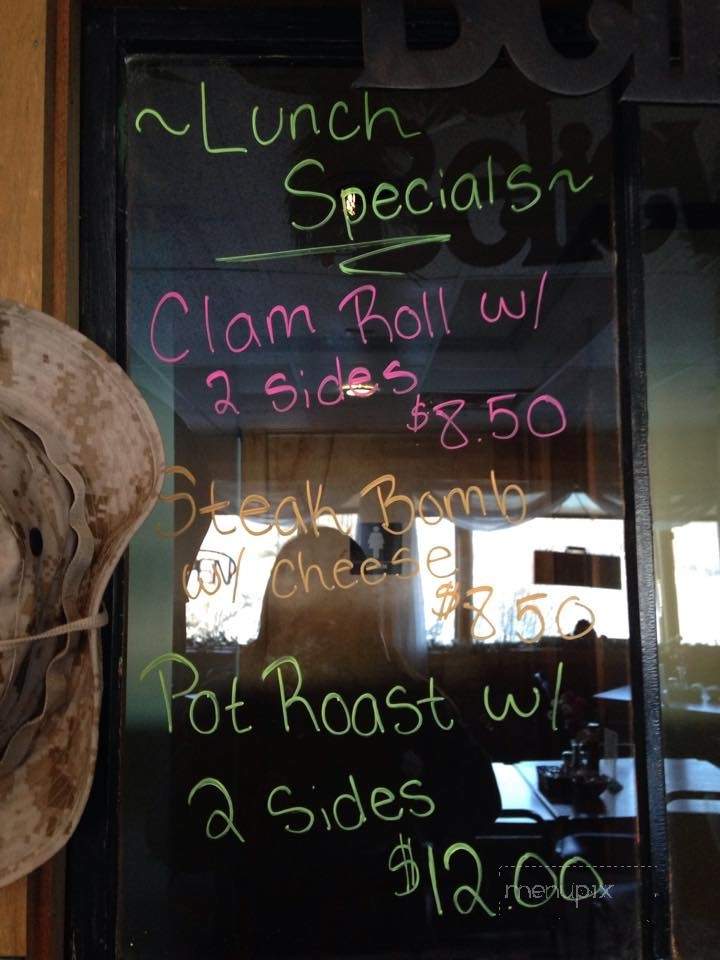 ~Lunch
Specials~
Clam Roll w/
2 sides
$8.50
Steak Bomb
w/ cheese
$8.50
Pot Roast w/
2 Sides
$12.00
menupix